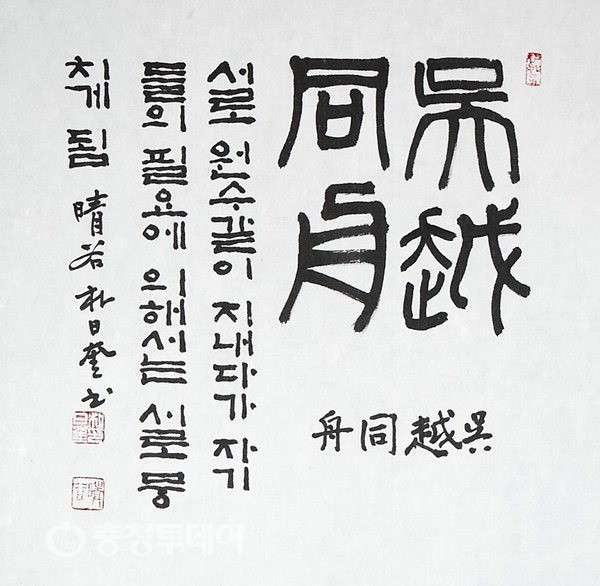 吳越
同舟
吳越同舟
서로 원수같이 지내다가 자기
들의 필요에 의해서는 서로 뭉
치게 됨 晴谷 朴日奎 書
충청투데이